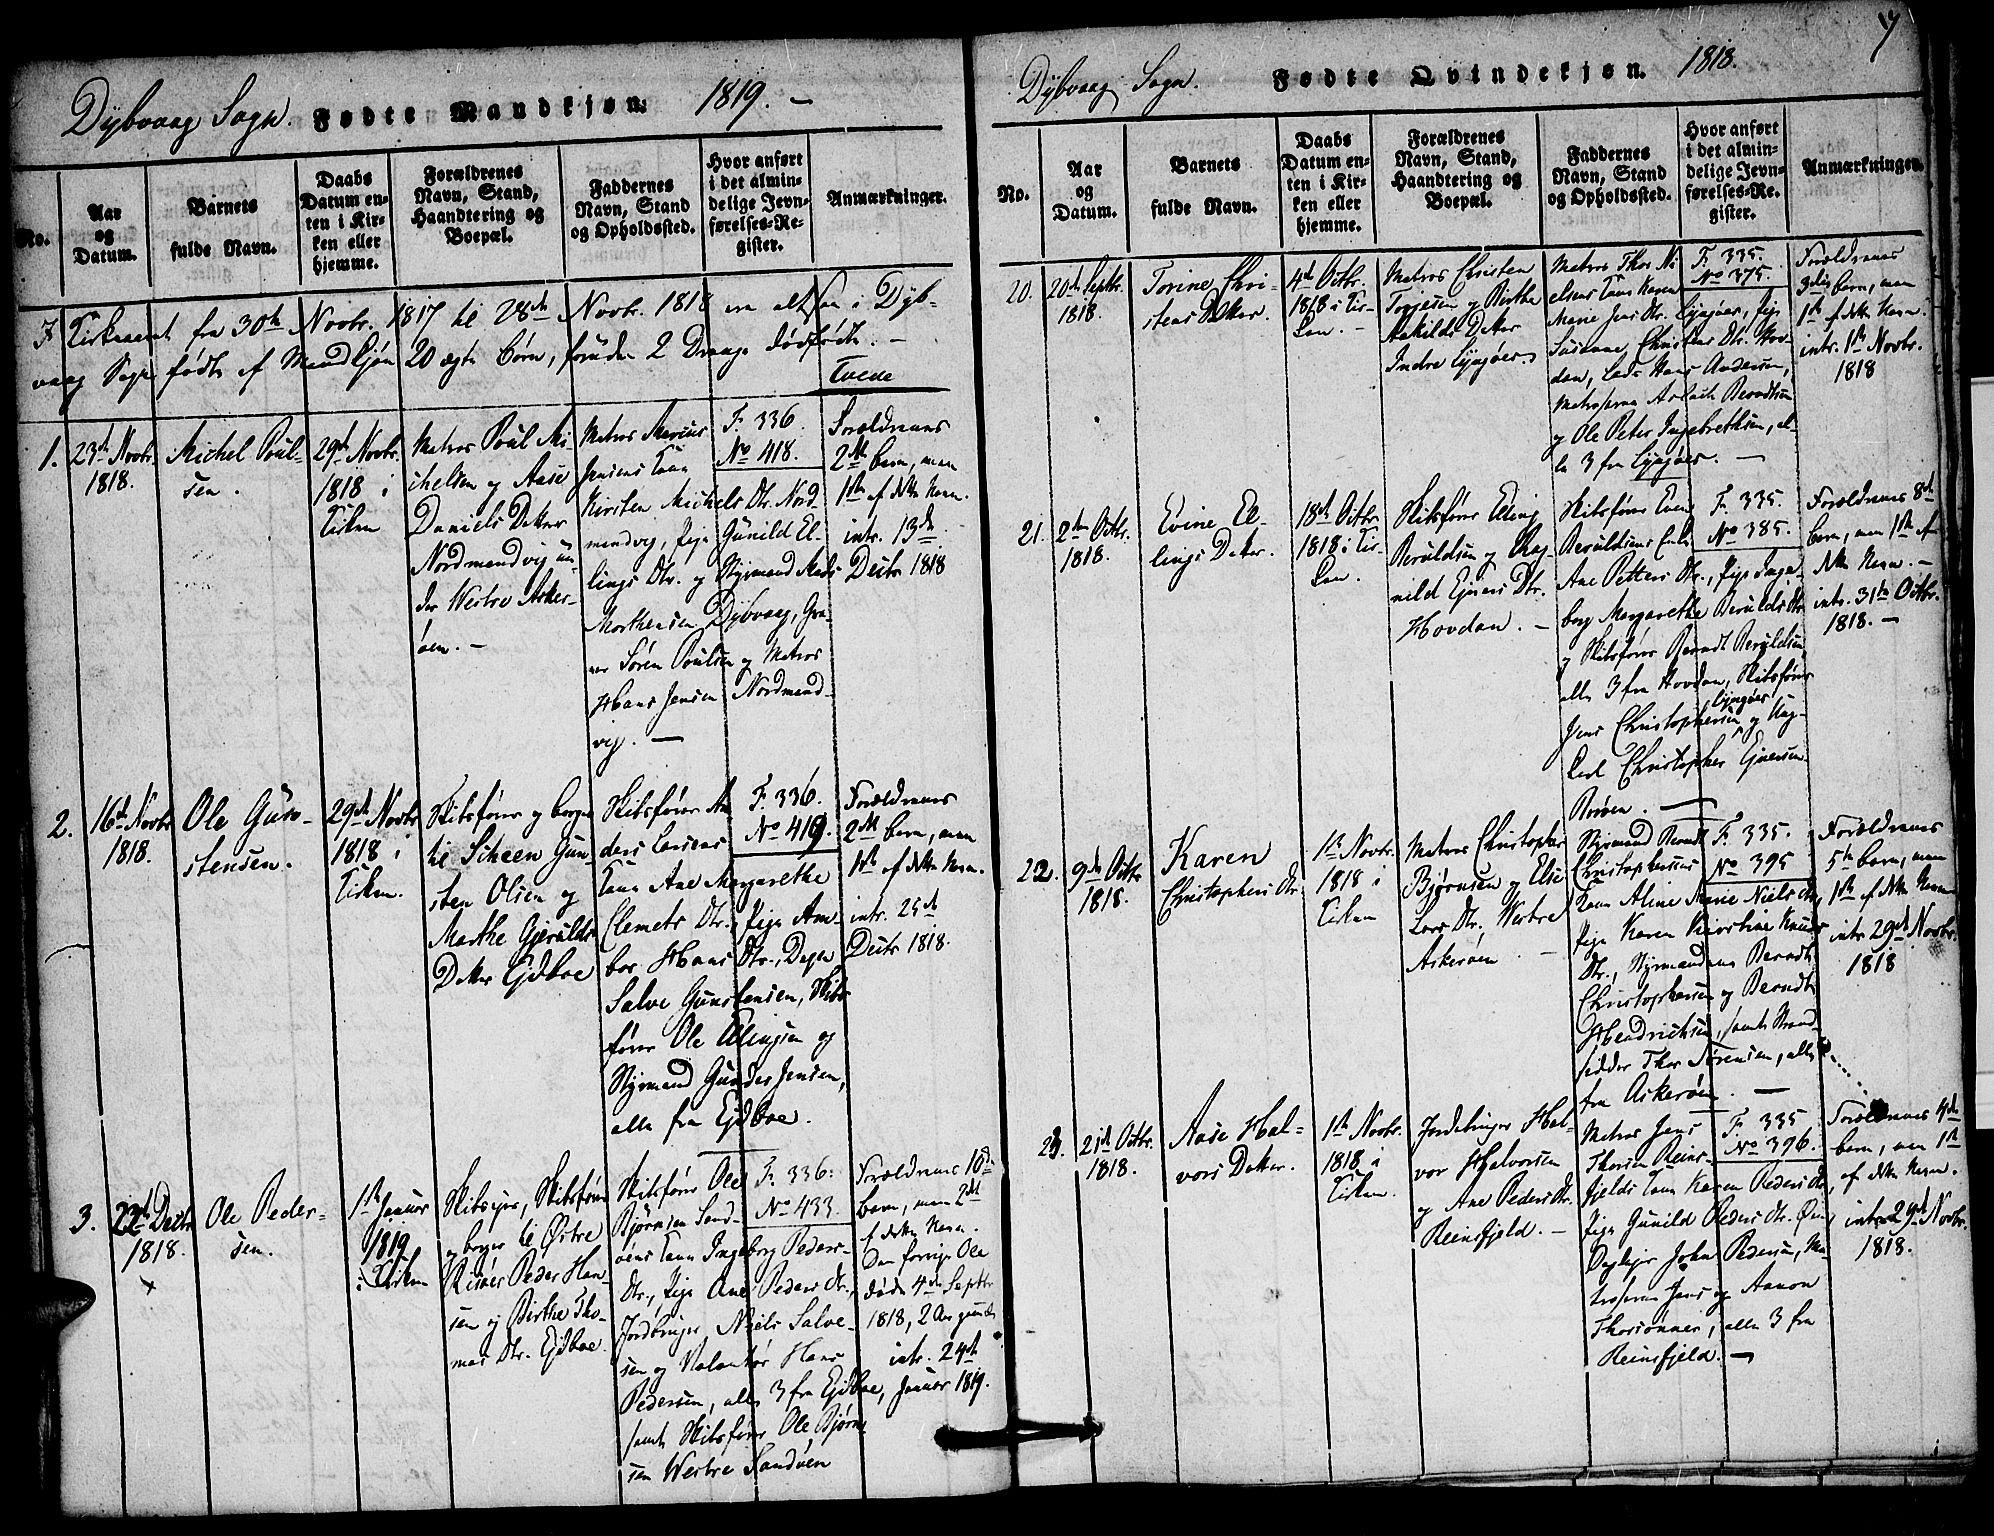 Dybvaag Sogn. Fødte Mandkjøn. 1819. —
No.
Aar
og
Datum.
Barnets
fulde Navn.
Daabs
Datum en-
ten i Kir-
ken eller
hjemme.
Forældrenes
Navn, Stand,
Haandtering og
Boepæl.
Faddernes
Navn, Stand
og Opholdssted.
Hvor anført
i det almin-
delige Jevn-
førelses-Re-
gister.
Anmærkninger.
I Kirkeaaret fra 30te Novbr. 1817 til 28de Novbr. 1818 ere altsaa i Dyb-
vaag Sogn født af Mandkjøn 20 ægte børn, foruden 2 Drenge dødfødte. —
Tvede
1.
23de Novbr.
1818.
Michel Poul-
sen.
29de Novbr.
1818 i
Kirken
Matros Poul Mi-
chelsen og Aase
Daniels Datter
Nordmandvig un-
der Westre Asker-
øen. —
Matros Marcus
Jensens Kone
Kirsten Michels Dtr. Nord-
mandvig, Pige Gunild El-
lings Dtr. og Styrmand Mads
Morthensen Dybvaag,
Søren Poulsen og Matros
Hans Jensen Nordmand-
vig. —
F. 336.
No 418.
Forældrenes
2det barn, men
1ste af dette Navn.
intr. 13de
Decbr 1818
2.
16de Novbr
1818.
Ole Gun-
stensen.
29de Novbr
1818 i
Kirken.
Skibsfører og borger
til Scheen Gun-
sten Olsen og
Marthe Gjerulds
Datter Ejdboe
Skibsfører An-
ders Larsens
Kone Ane Margarethe
Clemets Dtr., Pige Am-
bor Hans Dtr.,
Salve Gunstensen, Skibs-
fører Ole Ellingsen og
Styrmand Gunder Jensen,
alle fra Ejdboe.
F. 336.
No 419.
Forældrenes
2det barn, men
1ste af dette Navn.
intr. 25de
Decbr 1818.
3.
22de Decbr
1818.
Ole Peder-
sen.
1ste Januar
1819
i Kirken
Skibseyer, Skibsfører
og borger til Østre
Riisøer Peder Han-
sen og Birthe Tho-
mas Dtr. Ejdboe.
Skibsfører Ole
Bjørnsen Sand-
øens Kone Ingeborg Peders-
Dtr., Pige Ane Peders Dtr.,
Jordbruger Niels Salve-
sen og Hans
Pedersen, alle 3 fra Ejdboe,
samt Skibsfører Ole Bjørn-
sen Westre Sandøen
F. 336.
No 433.
Forældrenes 10de
barn, men 2det
af dette Navn.
Den forrige Ole
døde 4de Septbr
1818, 2 Aar gammel
intr. 24de
Januar 1819.
7
Dybvaag Sogn. Fødte Qvindekjøn. 1818.
No.
Aar
og
Datum.
Barnets
fulde Navn.
Daabs
Datum en-
ten i Kir-
ken eller
hjemme.
Forældrenes
Navn, Stand,
Haandtering og
Boepæl.
Faddernes
Navn, Stand
og Opholdssted.
Hvor anført
i det almin-
delige Jevn-
førelses-Re-
gister.
Anmærkninger.
20.
20de Septbr.
1818.
Torine Chri-
stens Datter.
4de Octbr.
1818 i Kir-
ken. —
Matros Christen
Torjesen og Birthe
Askilds Datter
Indre Lyngøer.
Matros Thor Ni-
elsens Kone Karen
Marie Jens Dtr. Lyngøer, Pige
Susanne Christens Dtr. Hov-
dan, Lods Hans Andersen,
Matroserne Aslach Berndtsen
og Ole Peter Ingebrethsen, al-
le 3 fra Lyngøer. —
F. 335.
No 375.
Forældrenes
3die barn, men
1ste af dette Navn.
intr. 1ste Novbr.
1818
21.
2den Octbr.
1818.
Evine El-
lings Datter.
18de Octbr
1818 i Kir-
ken.
Skibsfører Elling
Beruldsen og Rag-
nild Ejners Dtr.
Hovdan. —
Skibsfører Even
Beruldsens Enke
Ane Petters Dtr., Pige Inge-
borg Margarethe Berulds Dtr
og Skibsfører Berndt Beruldsen,
alle 3 fra Hovdan, Skibsfører
Jens Christophersen Lyngøer, og Ung-
karl Christopher Ejnersen
Broen. —
F. 335.
No 385.
Forældrenes 8de
barn, men 1ste af
dette Navn. —
intr. 31te Octbr.
1818. —
22.
9de Octbr
1818.
Karen
Christophers Dtr.
1ste Novbr.
1818 i
Kirken
Matros Christopher
Bjørnsen og Else
Lars Dtr. Westre
Askerøen —
Styrmand Berndt
Christophersens
Kone Aline Marie Niels Dtr.,
Pige Karen Kirstine Knuds
Dtr., Styrmændene Berndt
Christophersen og Berndt
Hendrichsen, samt Strand-
sidder Thor Sørensen, alle
fra Askerøen. —
F. 335.
No 395
Forældrenes
5te barn, men
1ste af dette Navn
intr 29de Novbr.
1818
23.
21de Octbr.
1818.
Aase Hal-
vors Datter.
1ste Novbr.
1818 i
Kirken.
Jordbruger Hal-
vor Halvorsen
og Ane Peders Dtr.
Reinsfjeld. —
Matros Jens
Thorsen Reins-
fjelds Kone Karen Peders Dtr,
Pige Gunild Peders Dtr.
John Pedersen, Ma-
troserne Jens og Aanon
Thorsønner, alle 3 fra
Reinsfjeld. —
F. 335
No 396.
Forældrenes 4de
barn, men 1ste
af dette Navn.
intr. 29de Novbr.
1818.